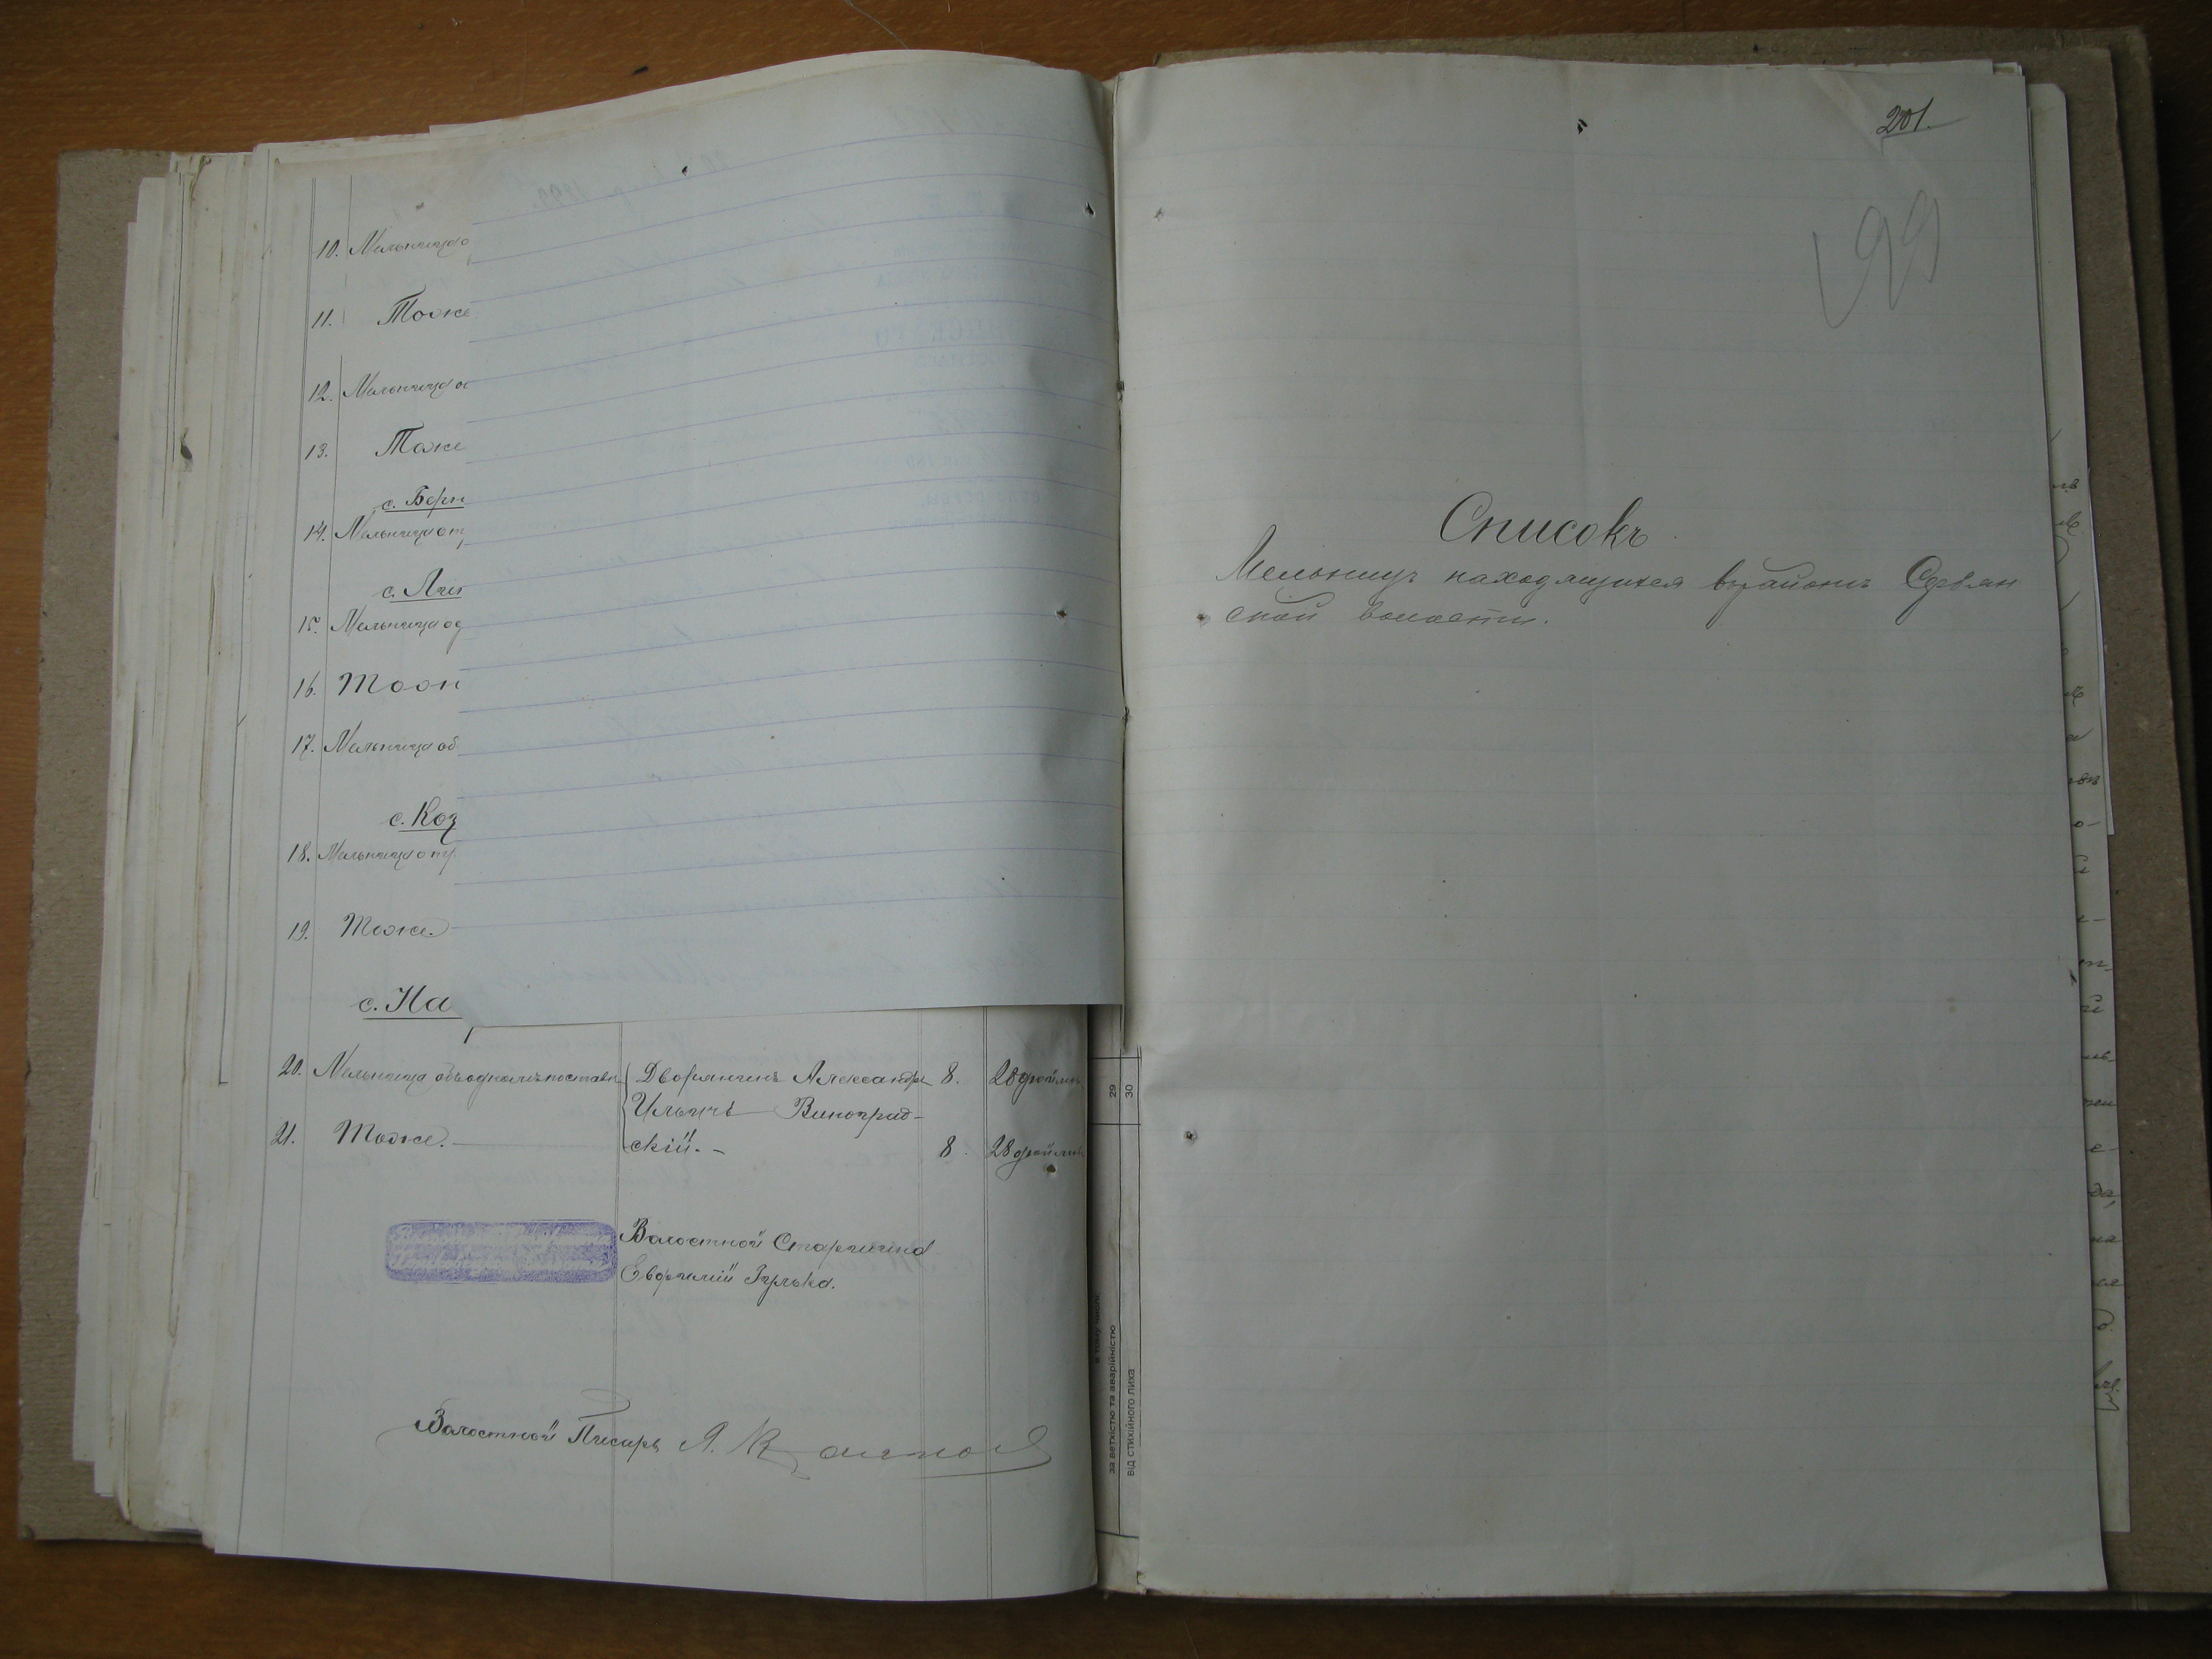 10. Мельница о
11. Тоже
12. Мельница ос
13. Тоже
с. Берн
14. Мельница от
с. Лип
15. Мельница од
16. Тоже
17. Мельница об
с. Коз
18. Мельница о тр
19. Тоже.
с. На
20. Мельница объ одномъ поставѣ Дворянинъ Александръ 8. 28 дюймъ
Ильичъ Виноград-
21. Тоже. скій. - 8. 28 дюймъ
Волостной Старшина
Евфимій
Волостной Писарь
29
30
за ветхістю та аварійністю
від стихійного лиха
201.
199
Списокъ
Мельницъ находящихся въ районѣ
ской волости.